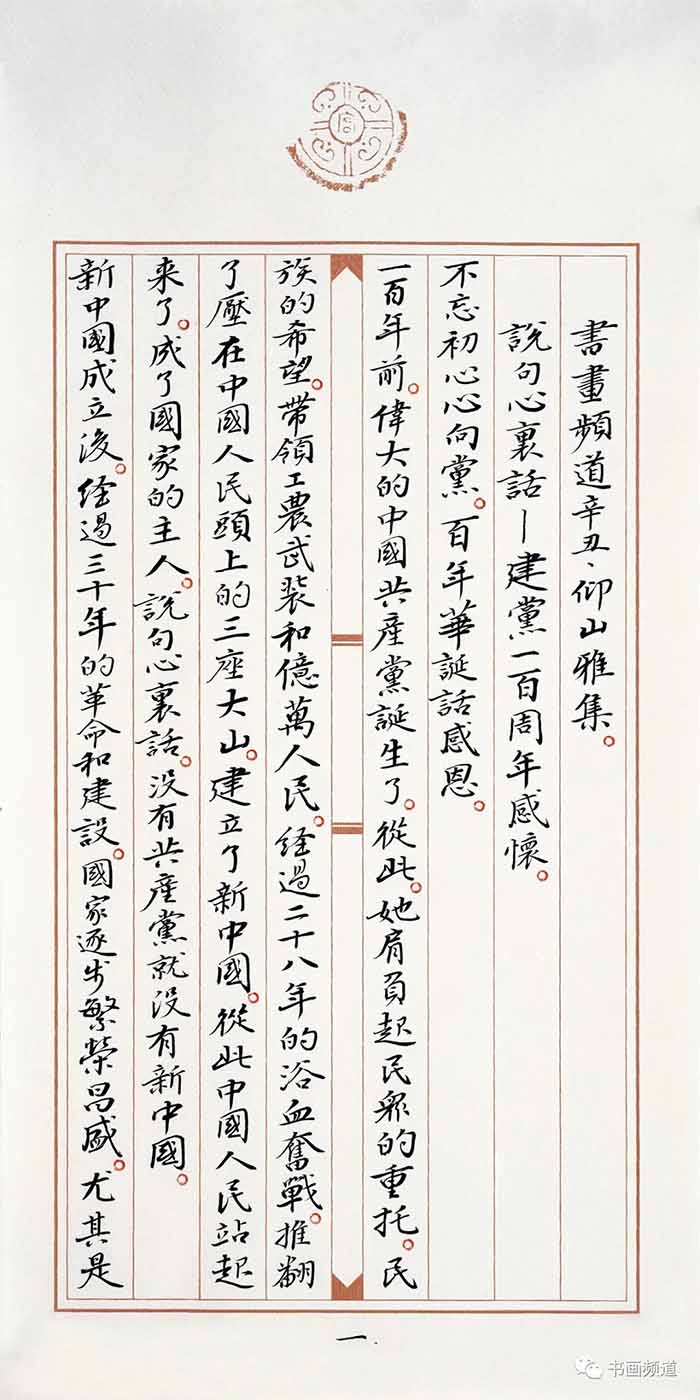 宫
書畫頻道辛丑、仰山雅集。
說句心裏話－建黨一百周年感懷。
不忘初心心向黨。百年華誕話感恩。
一百年前。偉大的中國共產黨誕生了。從此。她肩負起民眾的重托。民
族的希望。帶領工農武裝和億萬人民。経過二十八年的浴血奮戰。推翻
了壓在中國人民頭上的三座大山。建立了新中國。從此中國人民站起
来了。成了國家的主人。說句心裏話。没有共產黨就没有新中國。
新中國成立後。経過三十年的革命和建設。國家逐步繁榮昌盛。尤其是
一
书画频道